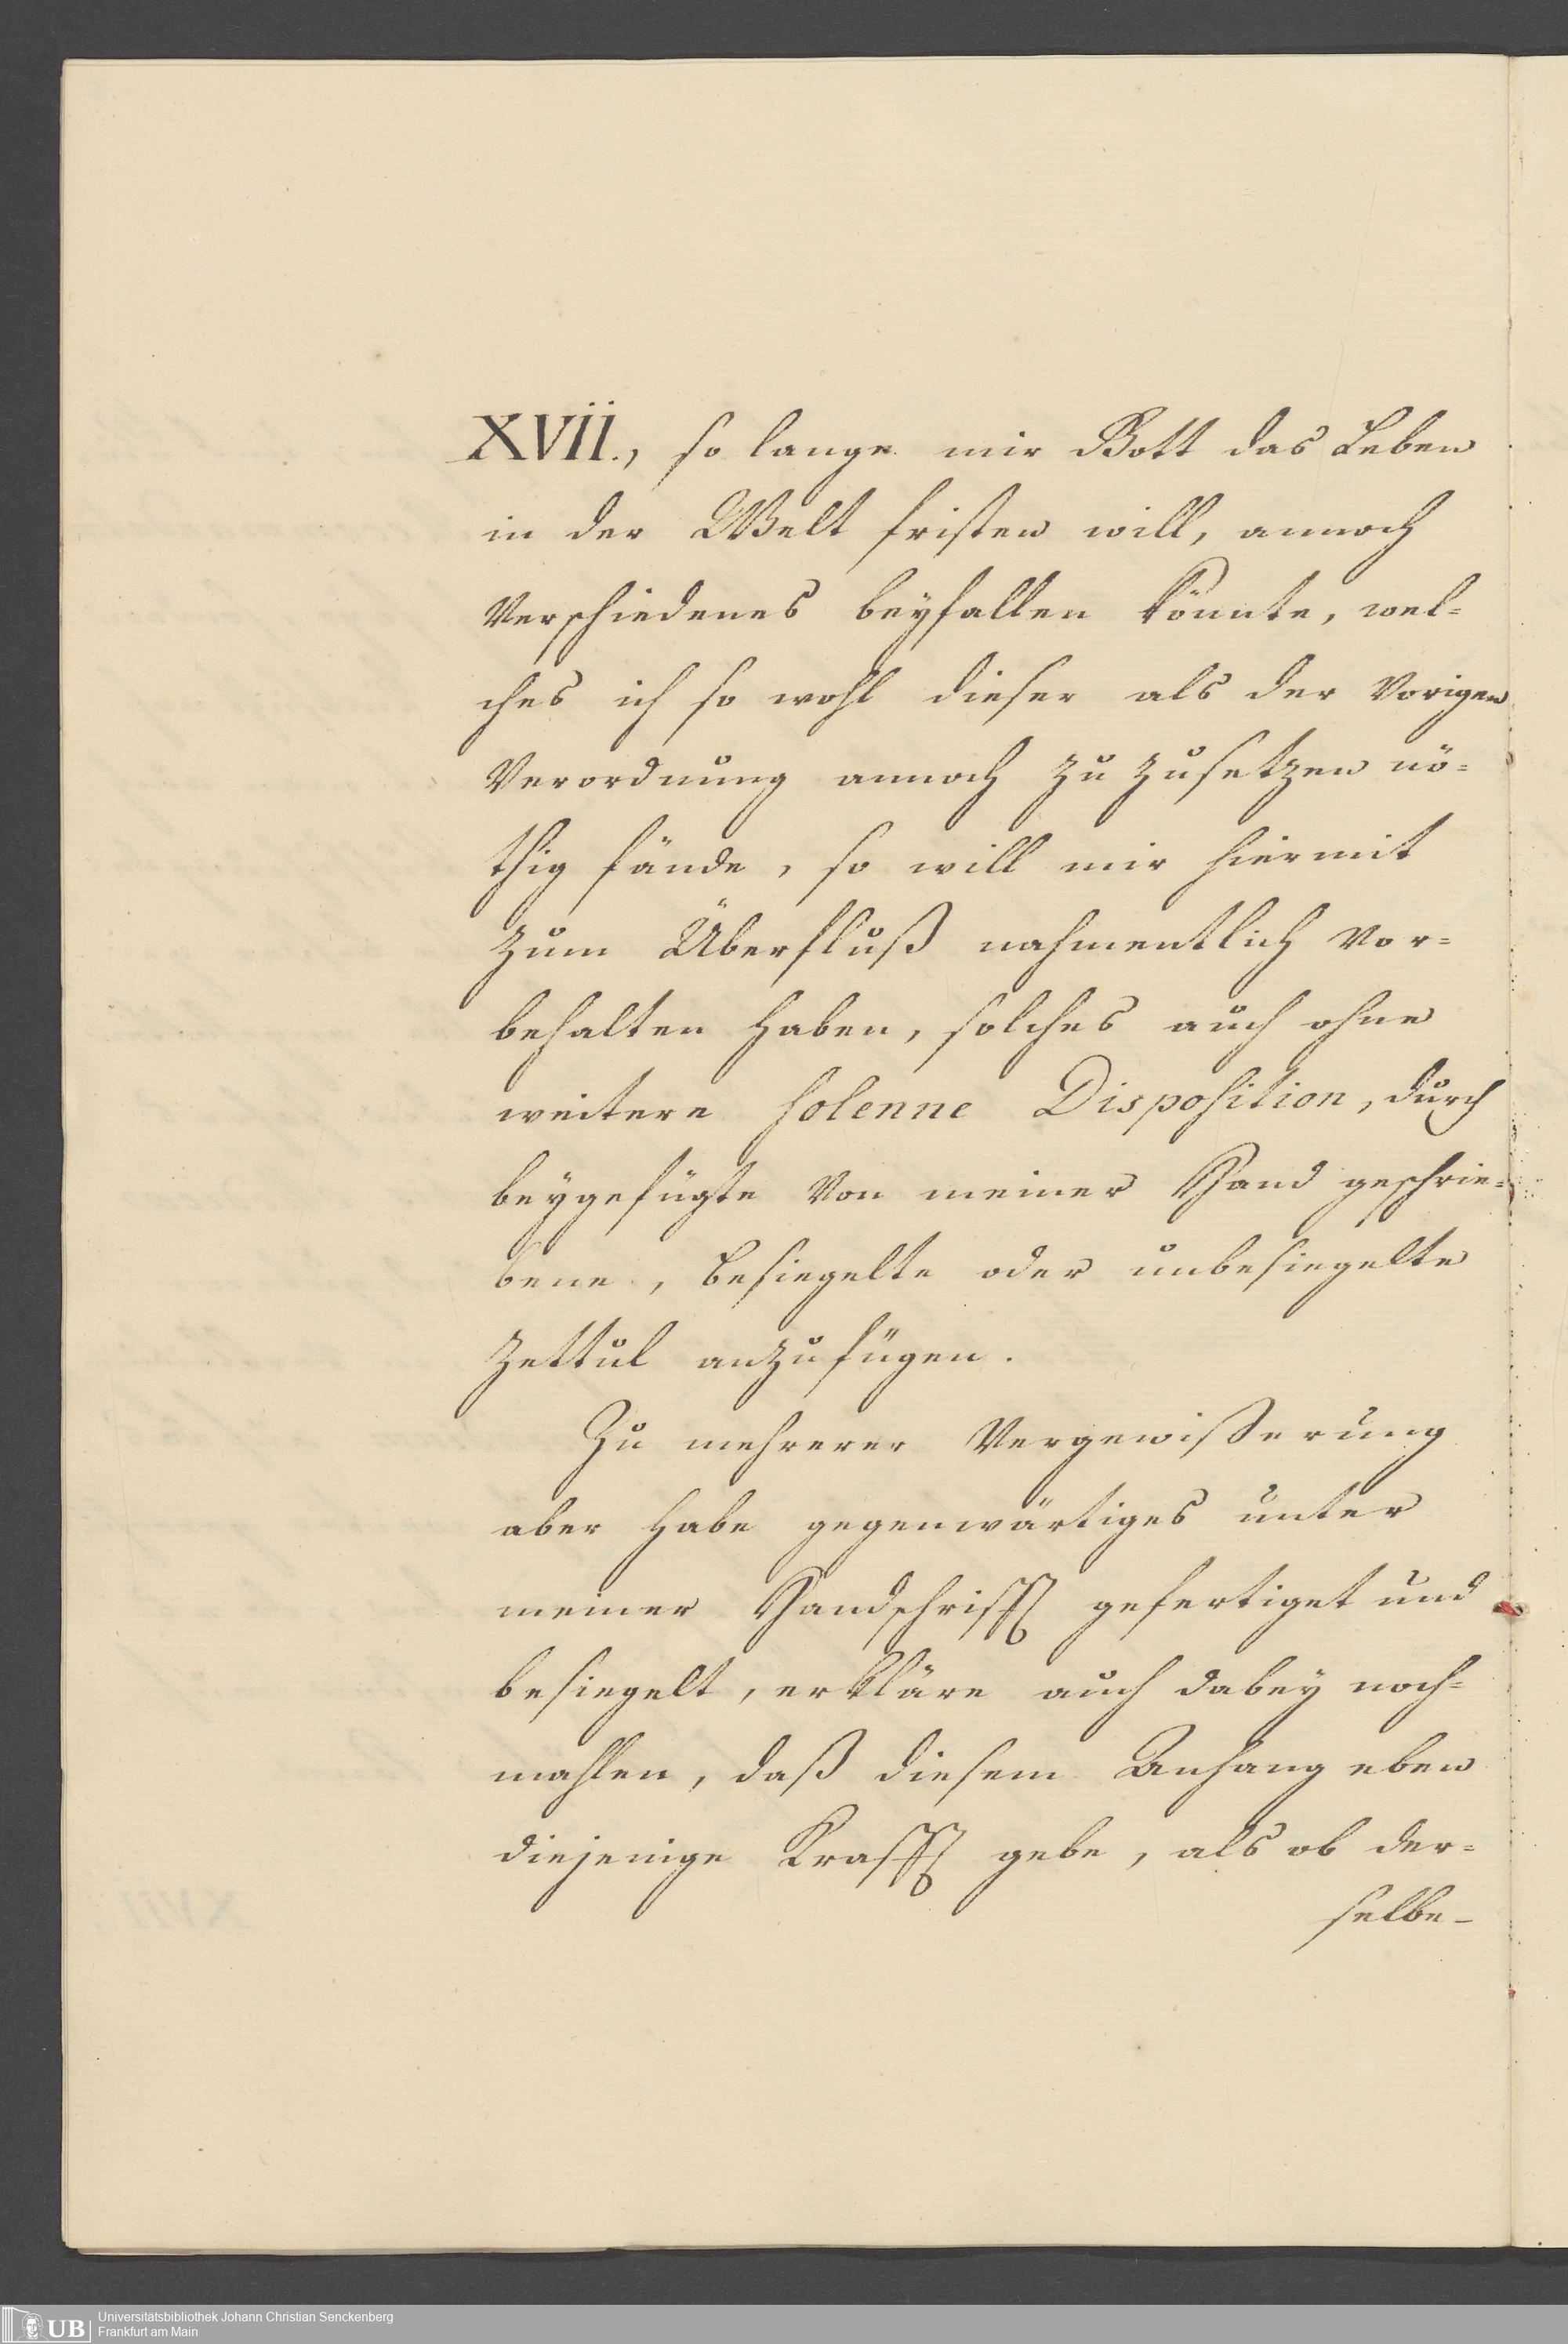 XVII., so lange mir Gott das Leben
in der Welt fristen will, annoch
Verschiedenes beyfallen könnte, wel=
ches ich so wohl dieser als der Vorigen
Verordnung annoch zu zusetzen nö=
thig fände, so will mir hiermit
zum Überfluß nahmentlich Vor=
behalten haben, solches auch ohne
weitere solenne Disposition, durch
beygefügte Von meiner Hand geschrie=
bene, besiegelte oder unbesiegelte
Zettul anzufügen.
Zu mehrerer Vergewißerung
aber habe gegenwärtiges unter
meiner Handschrifft gefertiget und
besiegelt, erkläre auch dabey noch=
mahlen, daß diesem Anhang eben
diejenige Krafft gebe, als ob der=
selbe-
UB
Universitätsbibliothek Johann Christian Senckenberg
Frankfurt am Main